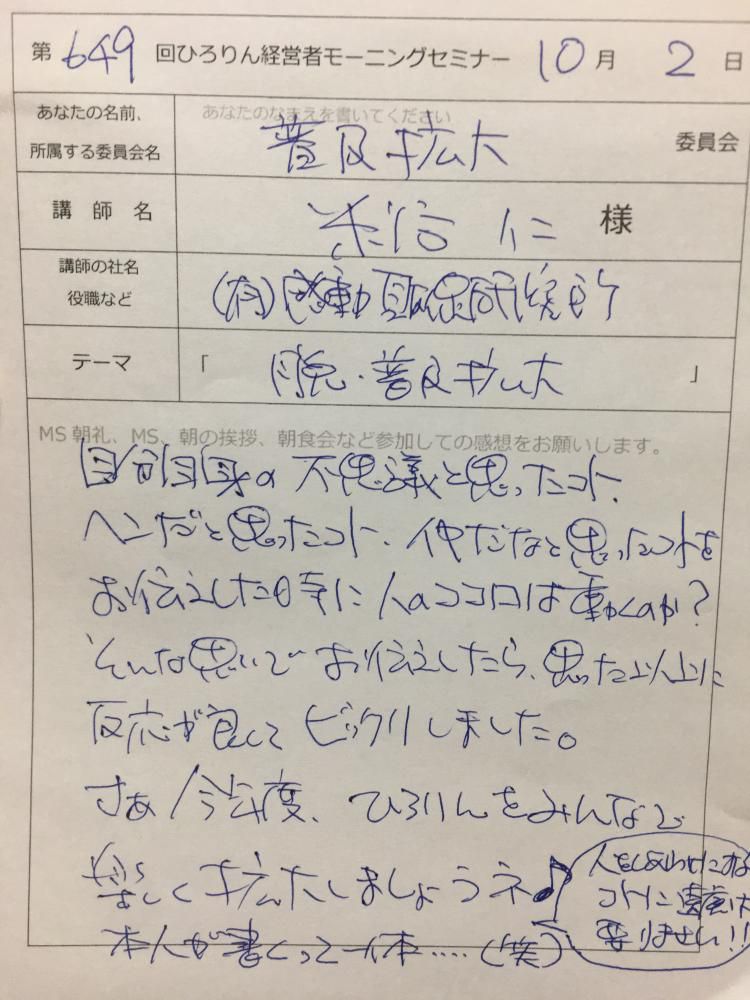 第 649 回ひろりん経営者モーニングセミナー 10 月 2 日
あなたの名前、
所属する委員会名
あなたのなまえを書いてください
普及拡大 委員会
講師名 仁 様
講師の社名
役職など
(有)感動 研究所
テーマ 「脱・普及拡大」
MS 朝礼、MS、朝の挨拶、朝食会など参加しての感想をお願いします。
自分自身の不思議と思ったコト、
ヘンだと思ったコト、 だなと思ったコトを
お伝えした時に人のココロは動くのか?
そんな思いでお伝えしたら、思った以上に
反応が良くてビックリしました。
さぁ今年度、ひろりんをみんなで
楽しく拡大しましょうネ♪
人をしあわせにする
コトに遠慮は
要りません!!
本人が書くって一体....(笑)